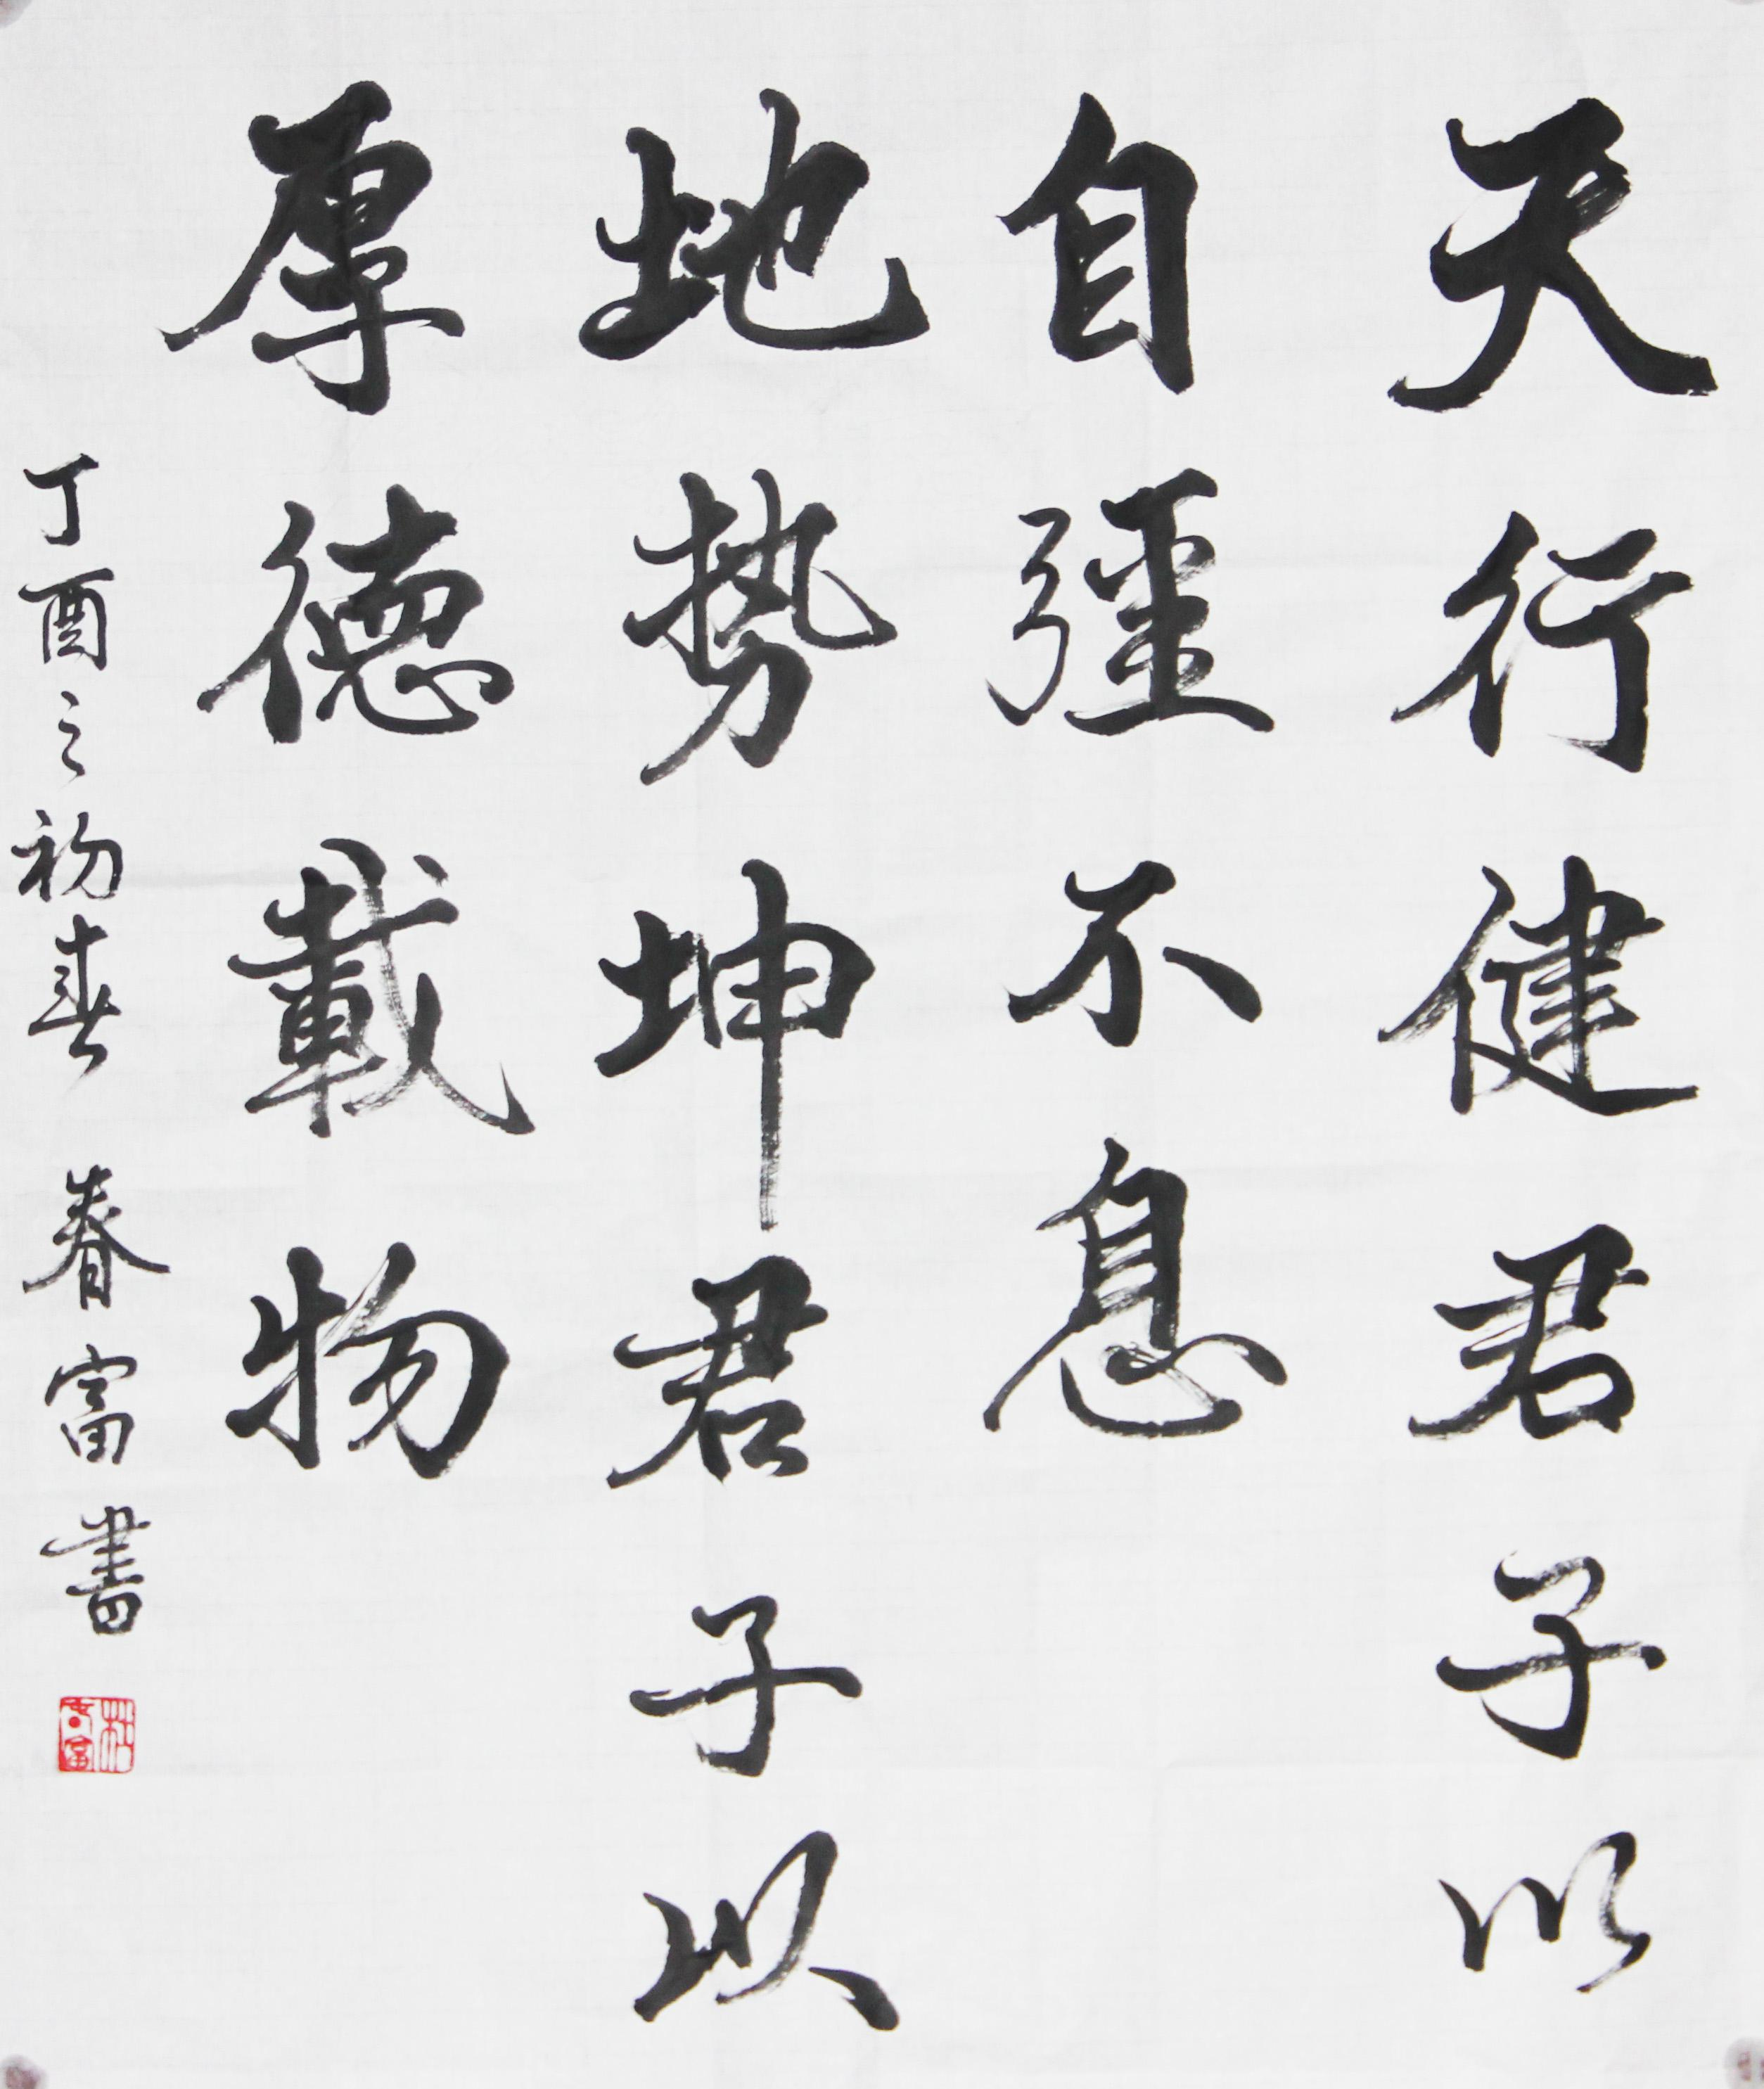 天行健君子以
自彊不息
地势坤君子以
厚德載物
丁酉之初春 春富書